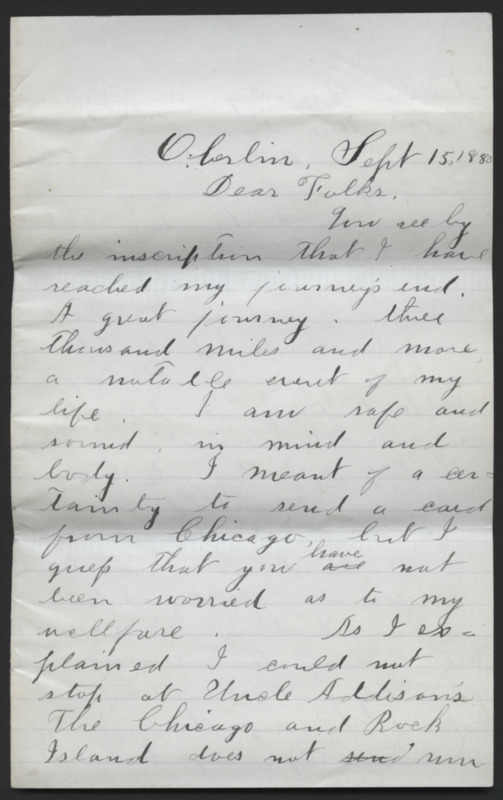 Oberlin, Sept 15, 188
Dear Folks.
You see by
the inscription that I have
reached my journey's end.
A great journey. three
thousand miles and more,
a notable event of my
life. I am safe and
sound, in mind and
body. I meant of a cer=
tainty to send a card
from Chicago, but I
guess that you have are not
been worried as to my
wellfare. As I ex=
plained I could not
stop at Uncle Addison's
The Chicago and Rock
Island does not send run